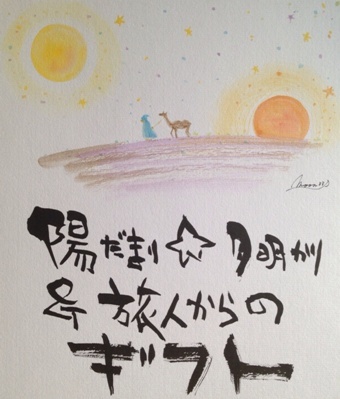 陽だまり☆月明かり
& 旅人からの
ギフト